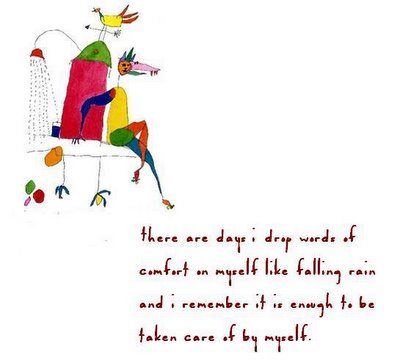 there are days i drop words of
comfort on myself like falling rain
and i remember it is enough to be
taken care of by myself.